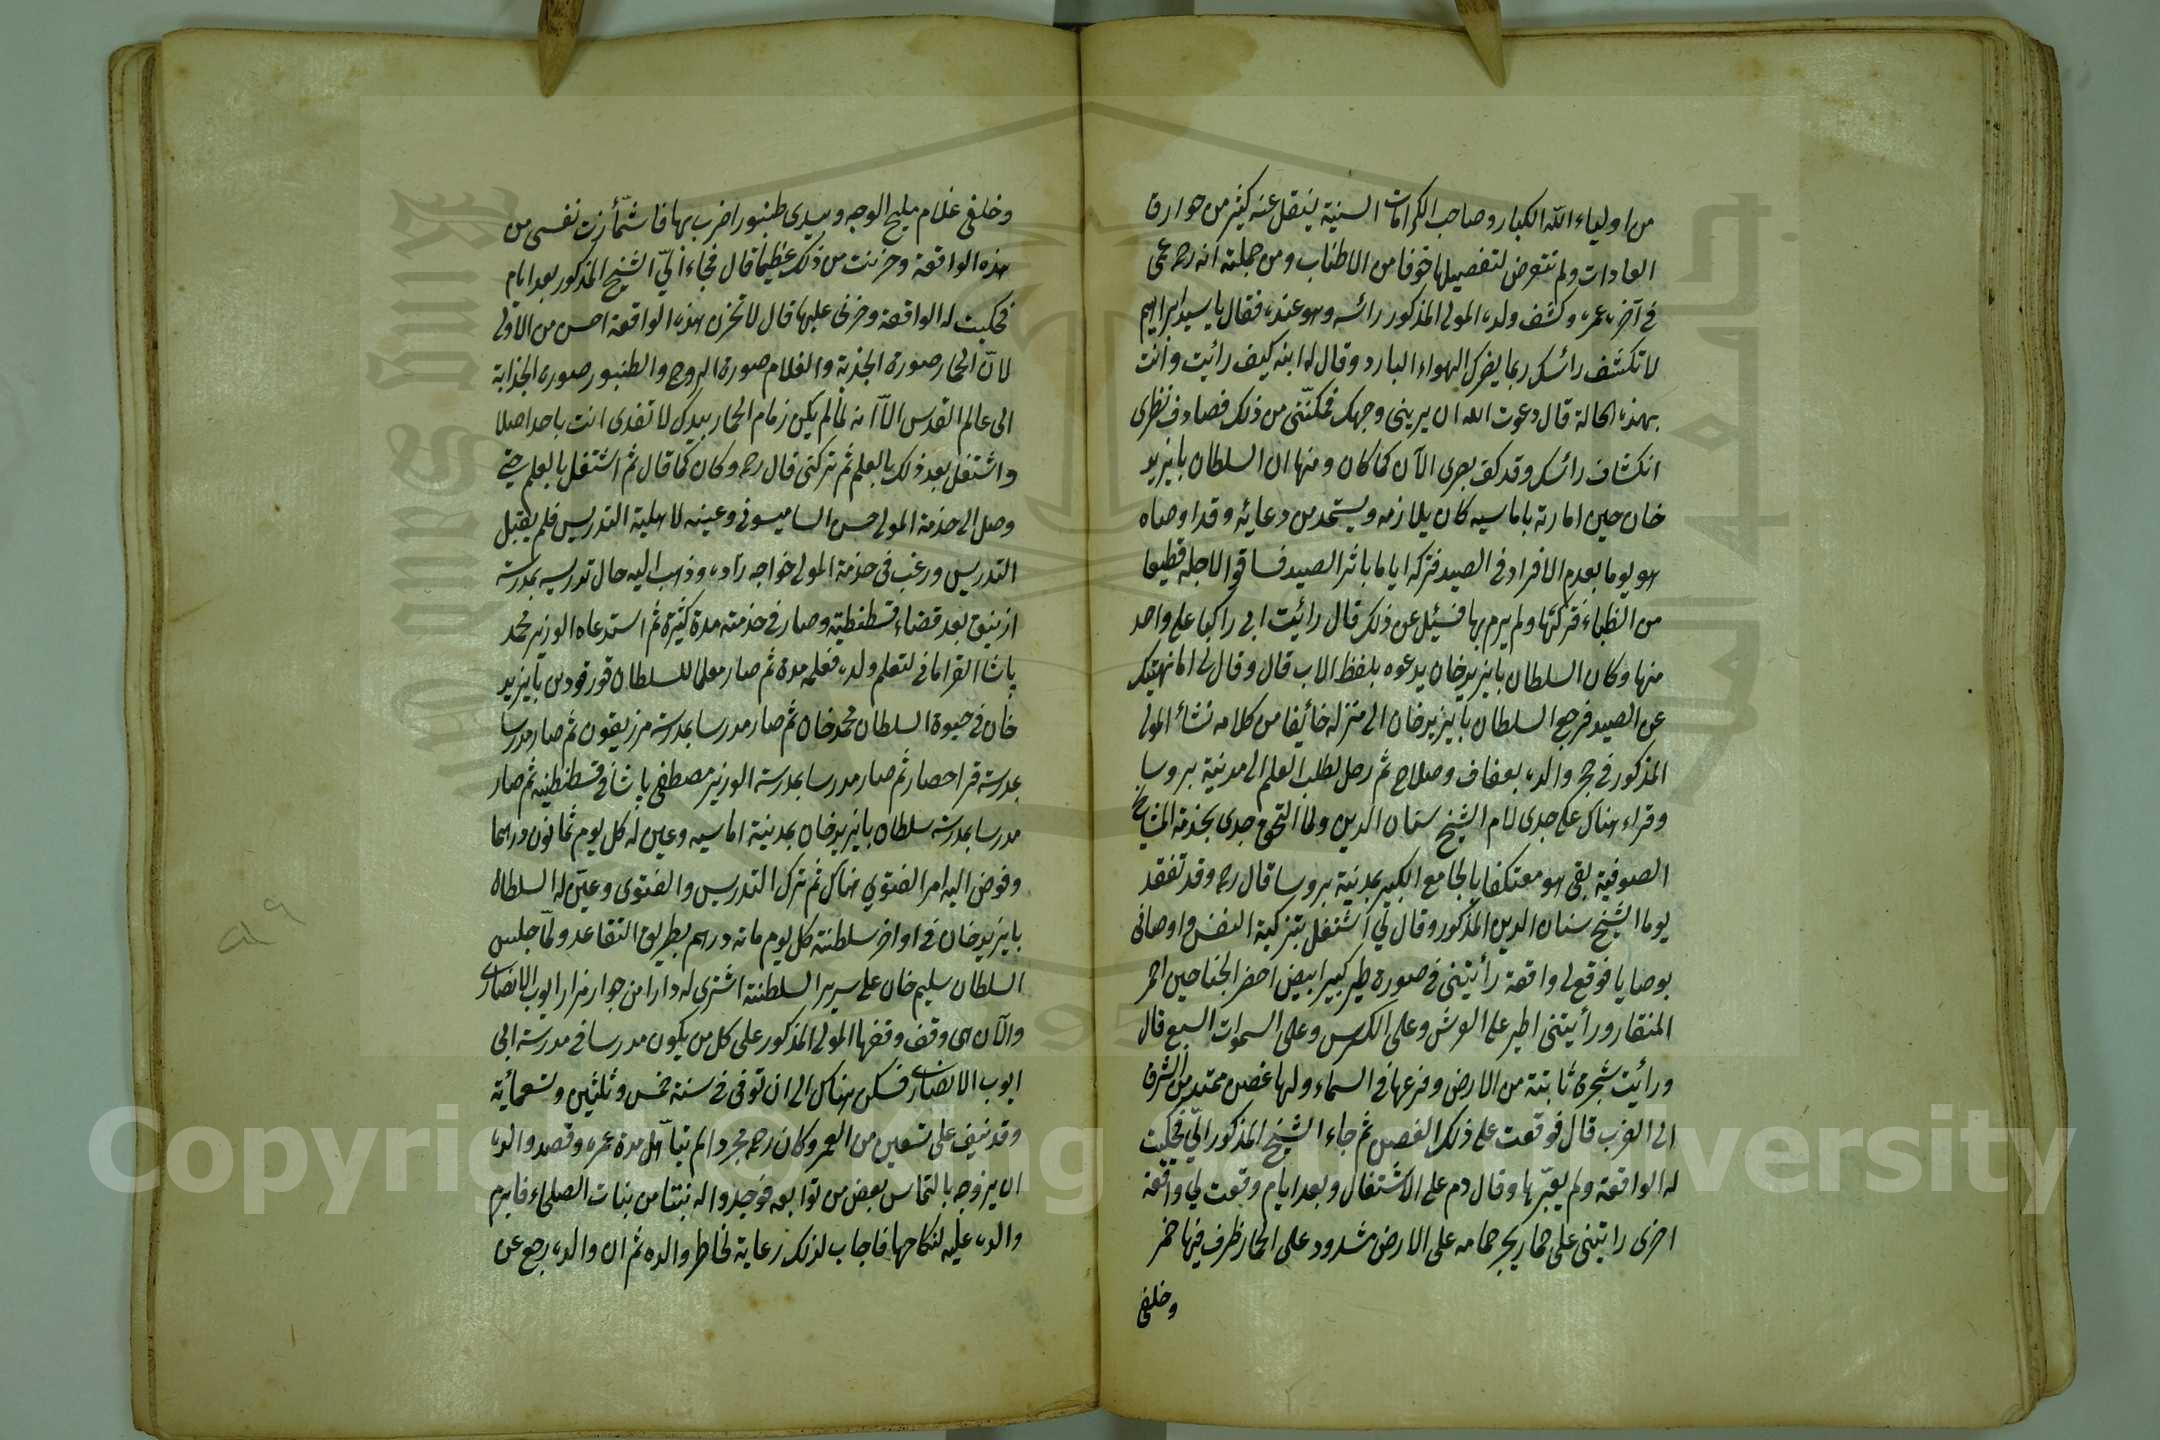 من اولياء الله الكبار وصاحب الكرامات السنية ينقل عنه كثير من خوارق
العادات ولم نتعرض لتفصيلها خوفا من الاطناب ومن جملته انه رحمه عمى
في آخر عمره وكشف ولده المولى المذكور رائسه وهو عنده فقال يا سيد ابراهيم
لا تكشف رائسك ربما يضرك الهواء البارد وقال له ابنه كيف رائيت وانت
بهذه الحالة قال دعوت الله ان يريني وجهك فمكننى من ذلك فصادف نظرى
انكشاف رائسك وقد كف بصرى الآن كما كان ومنها ان السلطان بايزيد
خان حين امارته باماسيه كان يلازمه ويستمد من دعائه وقد اوصاه
هو يوما بعدم الافراد في الصيد فتركه اياما باثر الصيد فساقوا لاجله قطيعا
من الظباء فتركها ولم يرم بها فسئل عن ذلك قال رائيت ابى راكبا على واحد
منها وكان السلطان بايزيد خان يدعوه بلفظ الاب قال وقال لى اما نهيتك
عن الصيد فرجع السلطان بايزيد خان الى منزله خائفا من كلامه نشاء المولى
المذكور في حجر والده بعفاف وصلاح ثم رحل لطلب العلم الى مدينة بروسا
وقراء هناك على جدى لام الشيخ سنان الدين ولما التحق جدى بخدمة المشايخ
الصوفية بقى هو معتكفا بالجامع الكبير بمدينة بروسا قال رحمه وقد تفقد
يوما الشيخ سنان الدين المذكور وقال لي اشتغل بتزكية النفس واوصانى
بوصايا فوقع لى واقعة رأيتنى في صورة طير كبير ابيض اخضر الجناحين احمر
المنقار ورأيتنى اطير على العرش وعلى الكرسى وعلى السموات السبع قال
ورائيت شجرة ثابتة من الارض وفرعها في السماء ولها غصن ممتد من الشرق
الى الغرب قال فوقعت على ذلك الغصن ثم جاء الشيخ المذكور الىّ فحكيت
له الواقعة ولم يعبّرها وقال دم على الاشتغال وبعد ايام وقعت لي واقعة
اخرى رايتنى على حمار يجر حمامه على الارض مشدود على الحمار ظرف فيها خمر
وخلفى
وخلفى غلام مليح الوجه وبيدى طنبور اضرب بها فاشمأزت نفسى من
هذه الواقعة وحزنت من ذلك عظيما قال فجاء الىّ الشيخ المذكور بعد ايام
فحكيت له الواقعة وحزنى عليها قال لا تحزن هذه الواقعة احسن من الاولى
لانّ الحمار صورة الجذبة والغلام صورة الروح والطنبور صورة الجذابة
الى عالم القدس الّا انه لما لم يكن زمام الحمار بيدك لا تقدى انت باحد اصلا
واشتغل بعد ذلك بالعلم ثم تركنى قال رحمه وكان كما قال ثم اشتغل بالعلم حتى
وصل الى خدمة المولى حسن الساميسونى وعينه لاهلية التدريس فلم يقبل
التدريس ورغب في خدمة المولى خواجه زاده وذهب اليه حال تدريسه بمدرسة
ازنيق بعد قضاء قسطنطية وصار في خدمته مدة كثيرة ثم استدعاه الوزير محمد
پاشا القرامانى لتعلم ولده فعلمه مدة ثم صار معلما للسلطان قورقود بن بايزيد
خان في حيوة السلطان محمد خان ثم صار مدرسا بمدرسة مرزيفون ثم صار مدرسا
بمدرسة قراحصار ثم صار مدرسا بمدرسة الوزير مصطفى پاشا في قسطنطينه ثم صار
مدرسا بمدرسة سلطان بايزيد خان بمدينة اماسيه وعين له كل يوم ثمانون درهما
وفوض اليه امر الفتوى هناك ثم ترك التدريس والفتوى وعيّن له السلطان
بايزيد خان في اواخر سلطنته كل يوم مائه درهم بطريق التقاعد ولمّا جلس
السلطان سليم خان على سرير السلطنة اشترى له دارا من جوار مزار ايوب الانصارى
والآن هى وقف وقفها المولى المذكور على كل من يكون مدرسا في مدرسة ابى
ايوب الانصارى فسكن هناك الى ان توفى في سنة خمس وثلثين وتسعمائة
وقد نيف على تسعين من العمر وكان رحمه مجردا لم يتأهل مدة عمره وقصد والده
ان يزوجه بالتماس بعض من توابعه فوجدوا له بنتا من بنات الصلحاء فابرم
والده عليه لنكاحها فاجاب لذلك رعاية لخاطر والده ثم ان والده رجع عن
Copyright © King Saud University